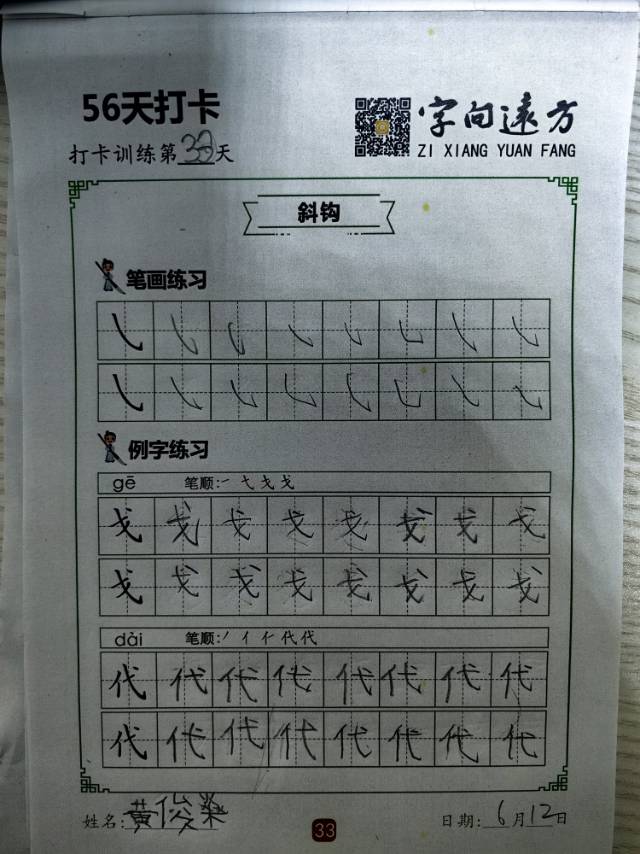 56天打卡
字向远方
打卡训练第33天
ZI XIANG YUAN FANG
斜钩
笔画练习
㇂ ㇂ ㇂ ㇂ ㇂ ㇂ ㇂ ㇂
㇂ ㇂ ㇂ ㇂ ㇂ ㇂ ㇂ ㇂
例字练习
gē 笔顺: ㇀ 弋 戈 戈
戈 戈 戈 戈 戈 戈 戈 戈
戈 戈 戈 戈 戈 戈 戈 戈
dài 笔顺: ㇒ 亻 仁 代 代
代 代 代 代 代 代 代 代
代 代 代 代 代 代 代 代
姓名: 黄俊
33
日期: 6月12日